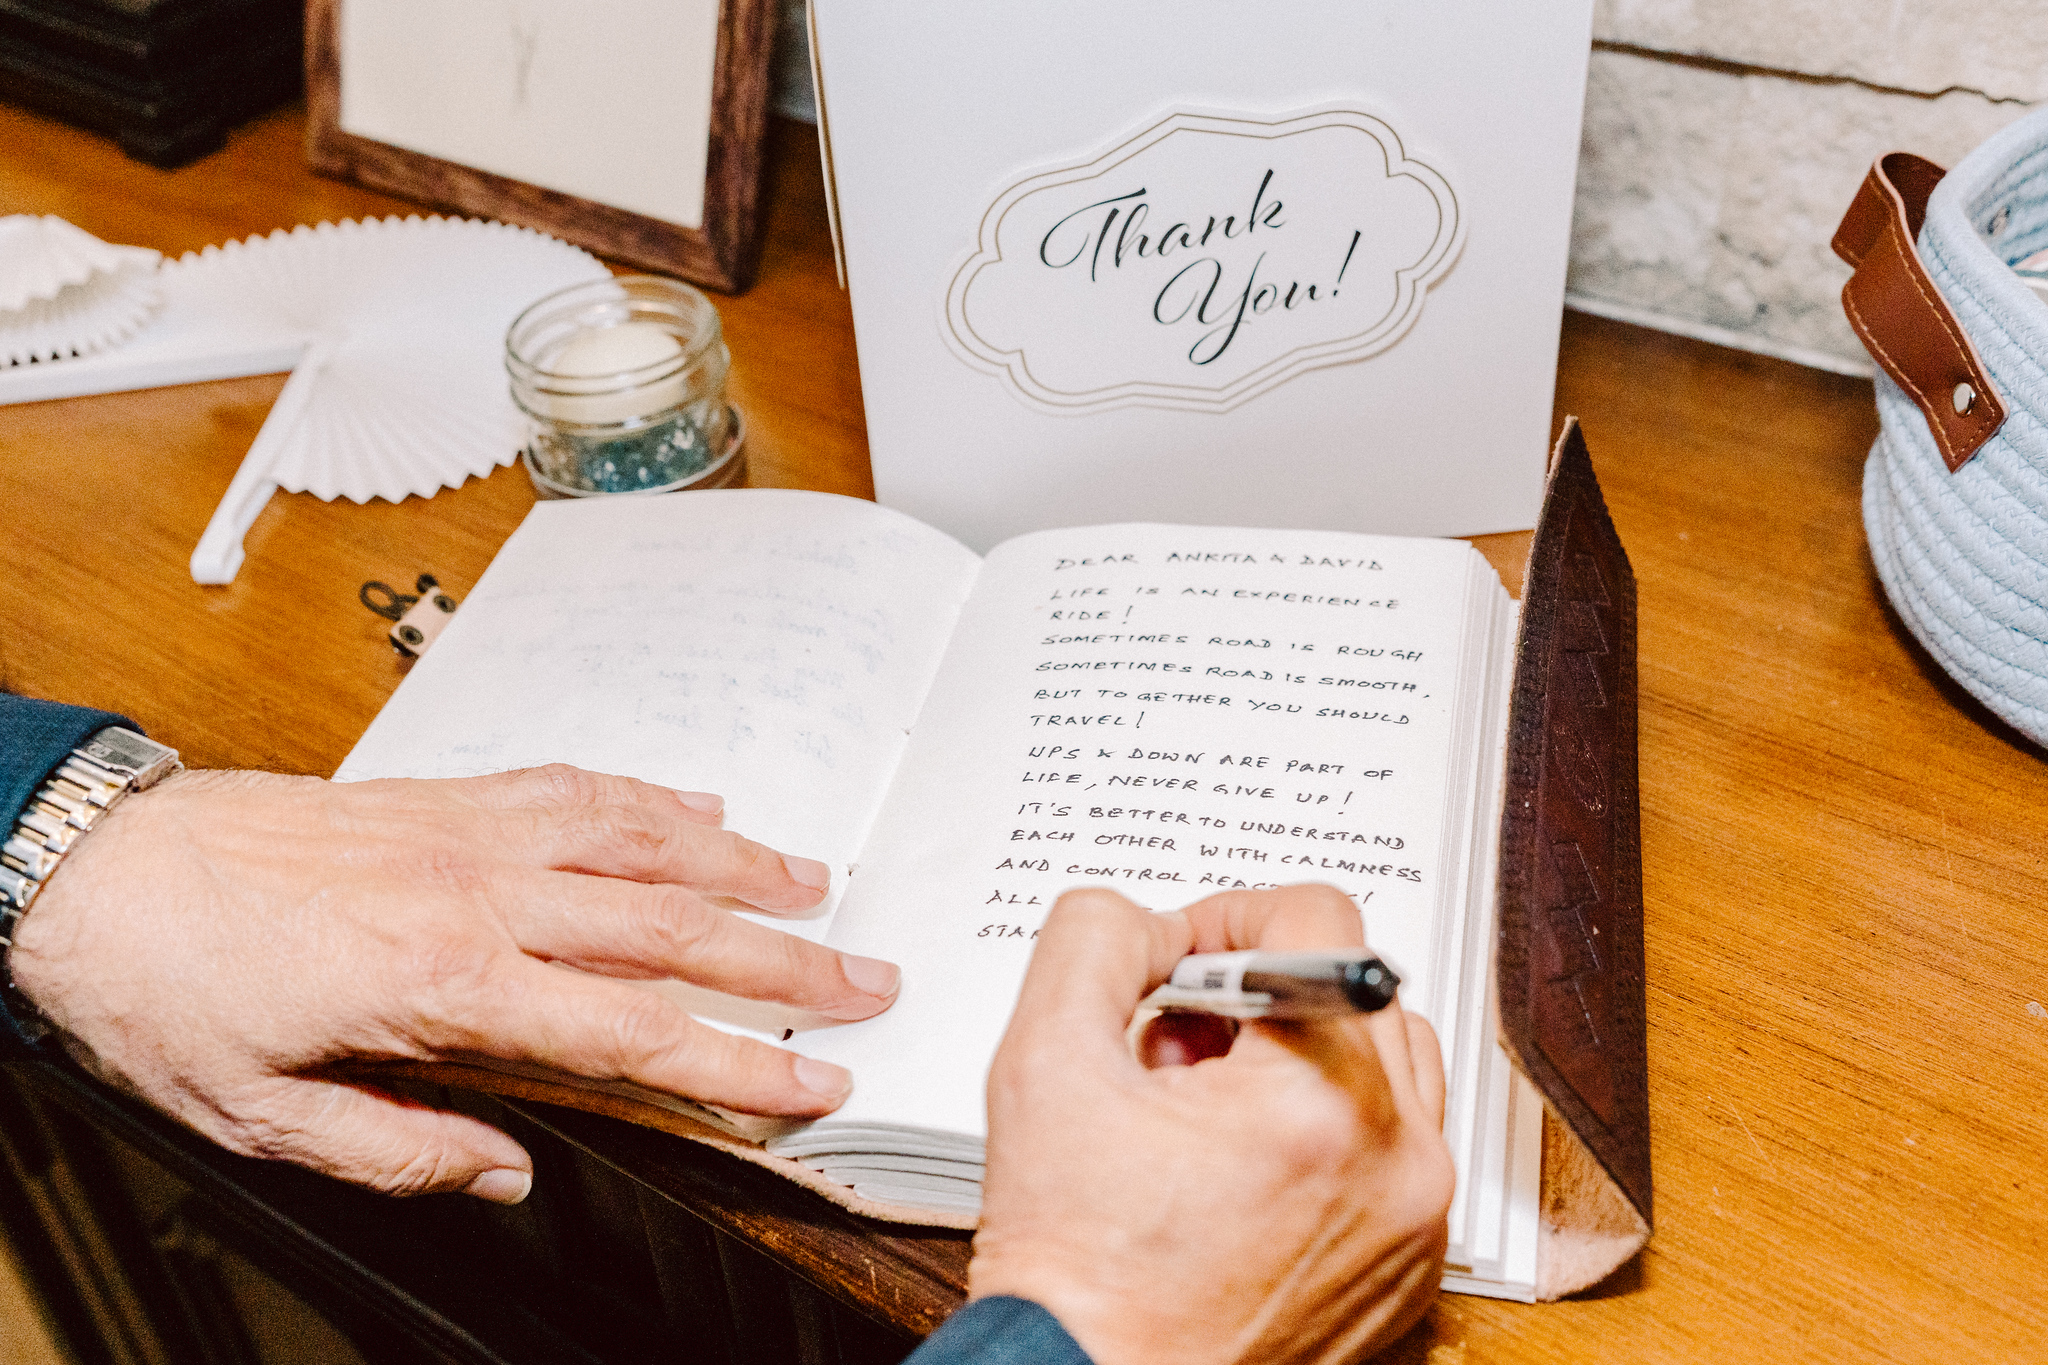 Thank
You!
DEAR ANKITA & DAVID
LIFE IS AN EXPERIENCE
RIDE!
SOMETIMES ROAD IS ROUGH
SOMETIMES ROAD IS SMOOTH,
BUT TO GETHER YOU SHOULD
TRAVEL!
UPS & DOWN ARE PART OF
LIFE, NEVER GIVE UP!
IT'S BETTER TO UNDERSTAND
EACH OTHER WITH CALMNESS
AND CONTROL
ALL